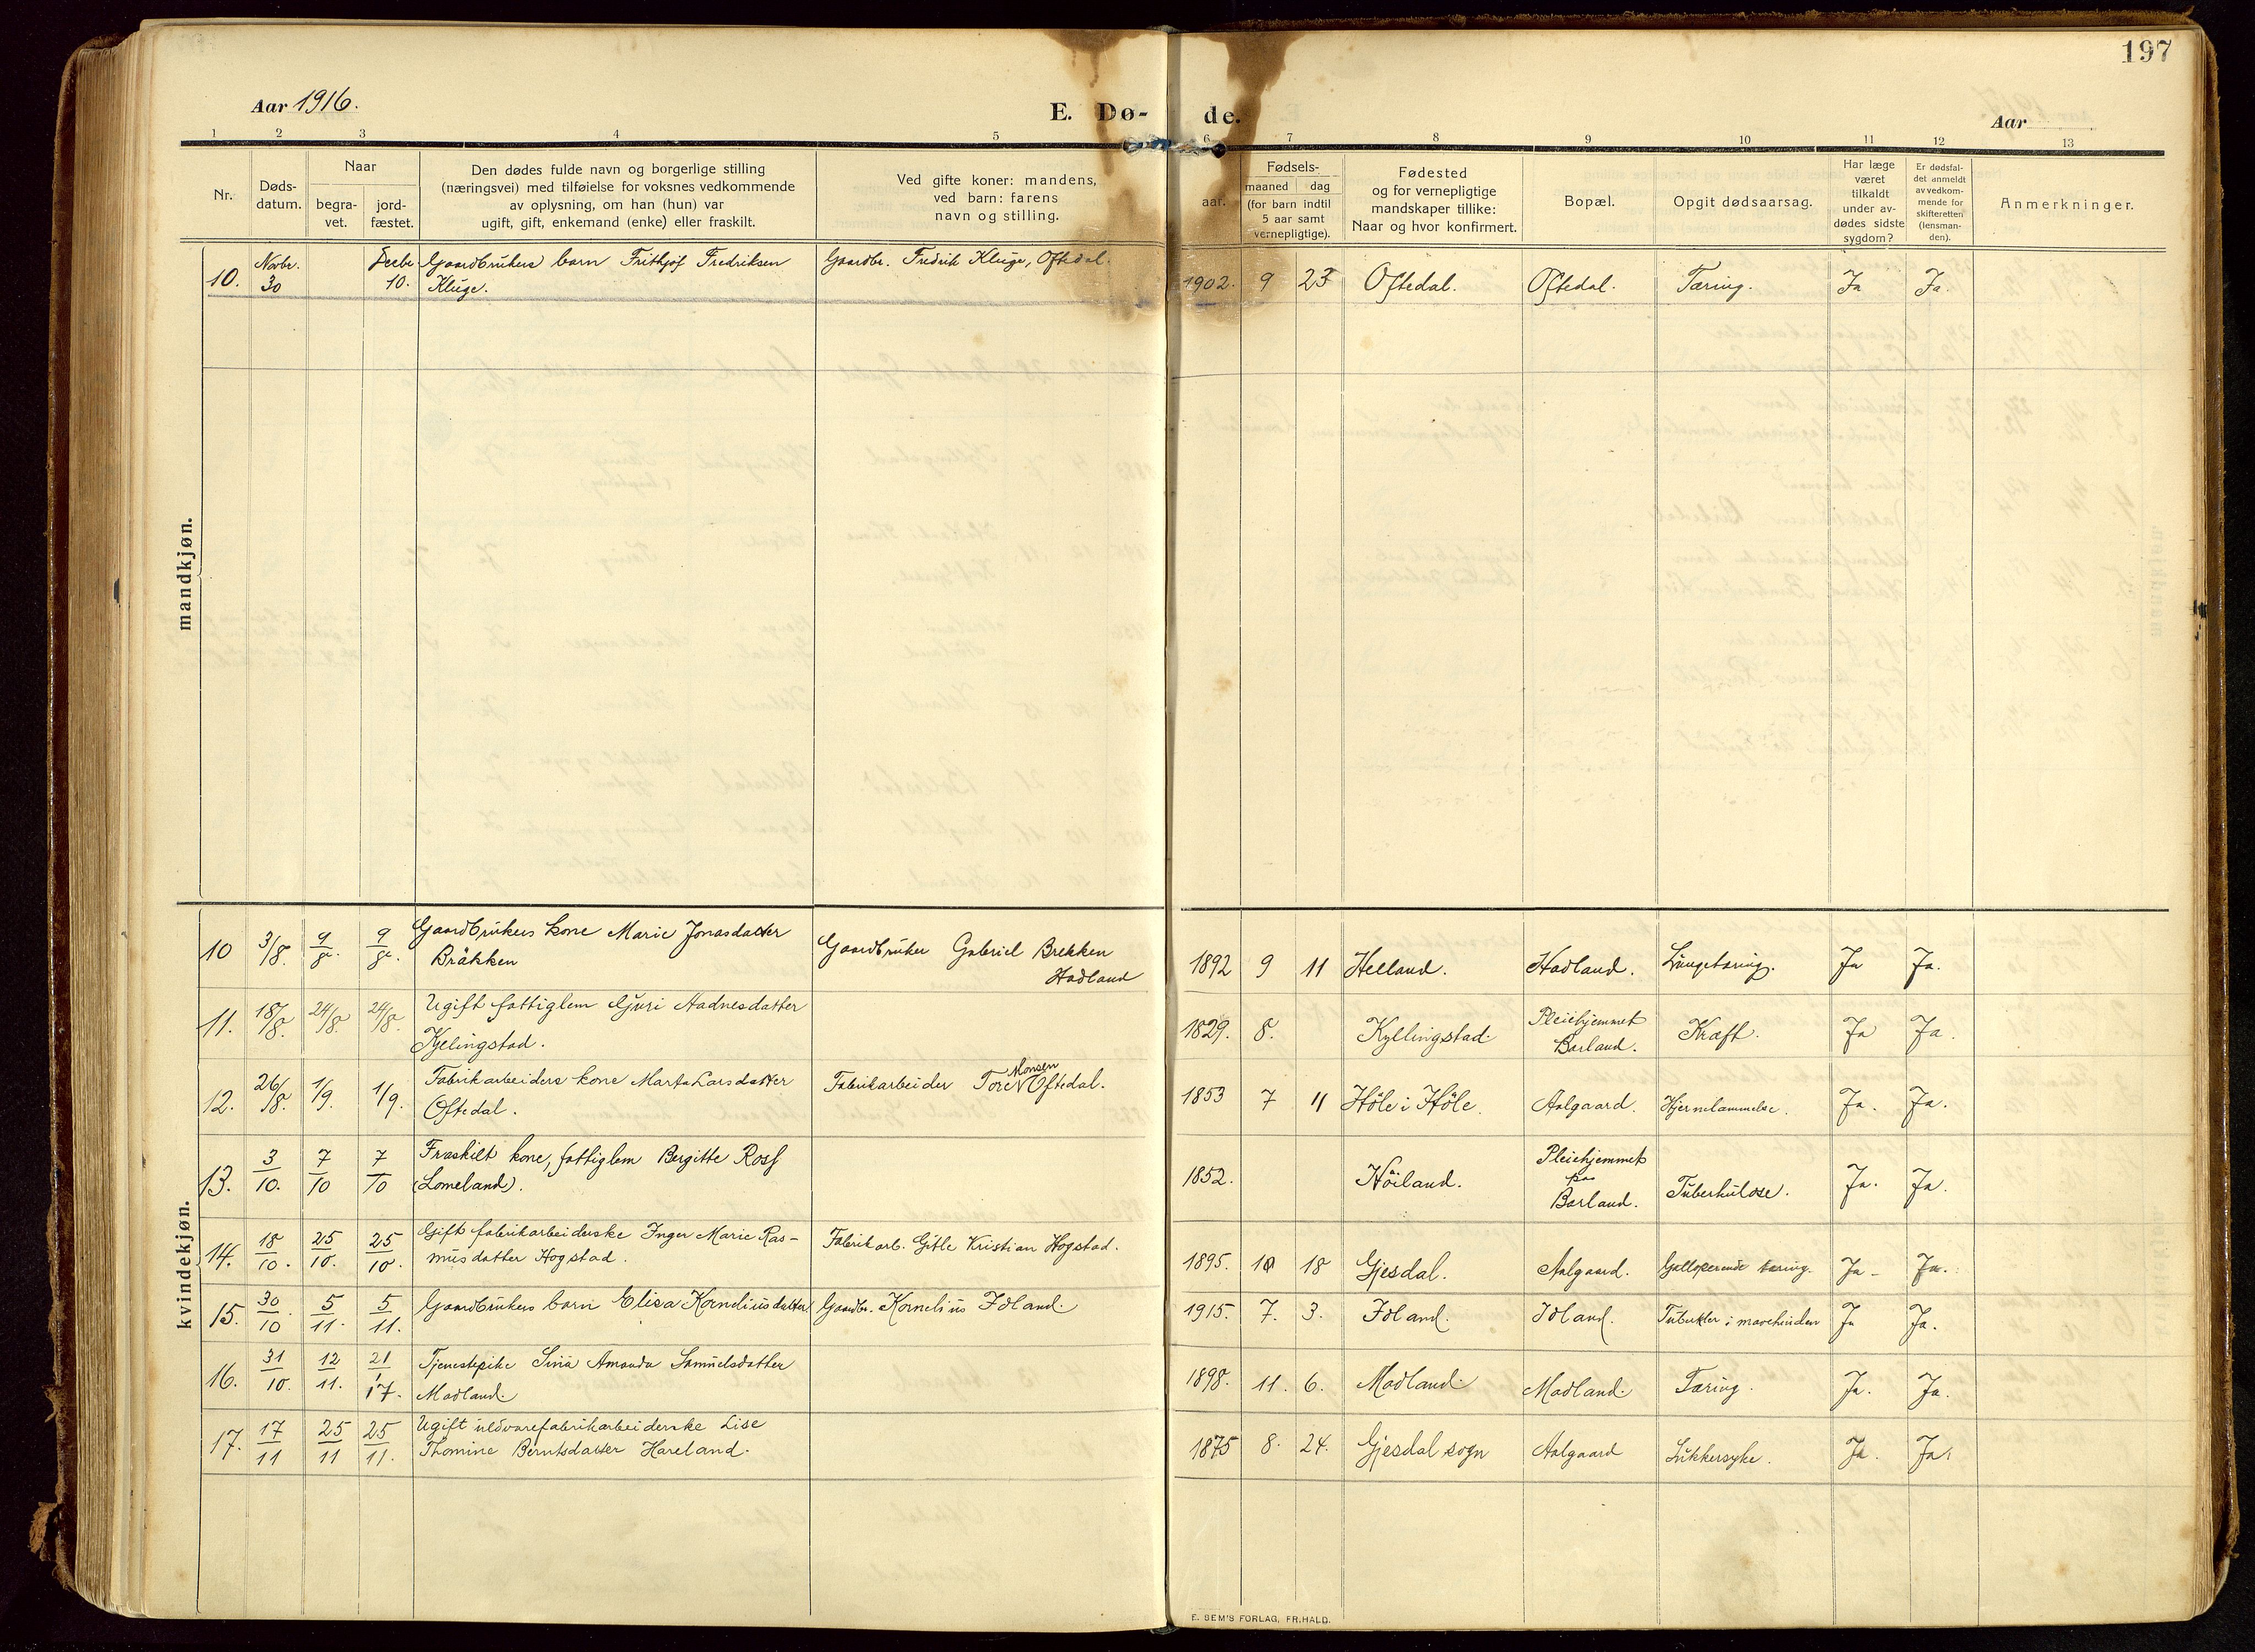 197
Aar 1916.
E. Dø-
de.
Aar
1 2 3 4 5 6 7 8 9 10 11 12 13
Nr.
Døds-
datum.
Naar
begra-
vet.
jord-
fæstet.
Den dødes fulde navn og borgerlige stilling
(næringsvei) med tilføielse for voksnes vedkommende
av oplysning, om han (hun) var
ugift, gift, enkemand (enke) eller fraskilt.
Ved gifte koner: mandens,
ved barn: farens
navn og stilling.
Fødsels-
aar.
maaned
dag
(for barn indtil
5 aar samt
vernepligtige).
Fødested
og for vernepligtige
mandskaper tillike:
Naar og hvor konfirmert.
Bopæl.
Opgit dødsaarsag.
Har læge
været
tilkaldt
under av-
dødes sidste
sygdom?
Er dødsfal-
det anmeldt
av vedkom-
mende for
skifteretten
(lensman-
den).
Anmerkninger.
mandkjøn.
10.
Novbr.
30
Decbr.
10.
Gaardbrukers barn Frithjof Fredriksen
Kluge.
Gaardbr. Fredrik Kluge, Oftedal.
1902. 9 23 Oftedal. Oftedal. Tæring. Ja Ja.
kvindekjøn.
10 3/8. 9/8. 9/8.
Gaardbrukers kone Marie Jonasdatter
Bräkken
Gaardbruker Gabriel Brekken
Hadland
1892 9 11 Helland. Hadland. Lungetæring. Ja Ja.
11. 18/8. 24/8. 24/8.
Ugift fattiglem Guri Aadnesdatter
Kjelingstad.
1829. 8. Kyllingstad.
Pleiehjemmet
Borland.
Kræft. Ja Ja.
12. 26/8. 1/9. 1/9.
Fabrikarbeiders kone Marta Larsdatter
Oftedal.
Monsen
Fabrikarbeider Tore Oftedal.
1853 7 11 Høle i Høle. Aalgaard. Hjernelammelse. Ja. Ja.
13. 3/10. 7/10 7/10
Fraskilt kone, fattiglem Bergitte Ross
(Lomeland).
1852. Høiland.
Pleiehjemmet
paa
Borland.
Tuberkulose. Ja. Ja.
14. 18/10. 25/10. 25/10.
Gift fabrikarbeiderske Inger Marie Ras-
musdatter Hogstad.
Fabrikarb. Gitle Kristian Hogstad.
1895. 10 18 Gjesdal. Aalgaard. Galloperende tæring. Ja Ja.
15. 30/10. 5/11. 5/11.
Gaardbrukers barn Elisa Kornéliusdatter
Gaardbr. Kornelius Idland.
1915. 7. 3. Idland. Idland. Tuberkler i mavehinden Ja Ja.
16. 31/10. 12/11. 21/1 17.
Tjenestepike Sina Amanda Samuelsdatter
Madland.
1898. 11. 6. Madland. Madland. Tæring. Ja. Ja.
17. 17/11 25/11 25/11.
Ugift uldvarefabrikarbeiderske Lise
Thomine Berntsdatter Hareland.
1875 8. 24. Gjesdal sogn Aalgaard Sukkersyke. Ja. Ja.
E. SEM'S FORLAG, FR.HALD.